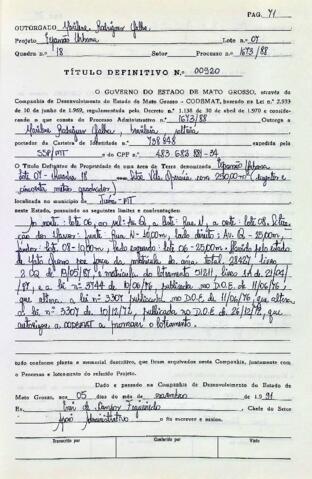 PAG. 71
OUTORGADO Marilene Rodrigues
Projeto Expansão Urbana Lote n.o 07
Quadra n.o 18 Setor Processo n.o 1673/88
TÍTULO DEFINITIVO N.o 00920
O GOVERNO DO ESTADO DE MATO GROSSO, através da
Companhia de Desenvolvimento do Estado de Mato Grosso - CODEMAT, baseado na Lei n.o 2.933
de 30 de junho de 1969, regulamentada pelo Decreto n.o 1.138 de 30 de abril de 1970 e conside-
rando o que consta do Processo Administrativo n.o 1673/88 Outorga a
Marilene Rodrigues, brasileira, solteira
portador da Carteira de Identidade n.o 798648 expedida pela
SSP/MT e do CPF n.o 483.682.881-34
O Título Definitivo de Propriedade de uma área de Terra denominada Expansão Urbana
Lote 07 - Quadra 18 com 250,00m² (duzentos e
cinquenta metros quadrados)
localizada no município de - MT
neste Estado, possuindo os seguintes limites e confrontações:
Ao norte: lote 06, ao sul: Av. Q, a leste: Rua N, a oeste: lote 08.
frente Rua N - 10,00m, lado direito: Av. Q - 25,00m,
fundos: lote 08 - 10,00m, lado esquerdo: lote 06 - 25,00m.
Mato Grosso por força da matrícula da área total 28427 livro
2 CQ de 19/05/87 e matrícula do loteamento 51211, livro 1A de 21/09/
87, e a lei n.o 3744 de 10/06/76, publicada no D.O.E. de 11/06/76,
que altera a lei n.o 3307 publicada no D.O.E. de 11/06/76, que altera
a lei n.o 3307 de 10/12/72, publicada no D.O.E. de 26/12/72, que
autorizou a CODEMAT a promover o loteamento.
tudo conforme planta e memorial descritivo, que ficam arquivados nesta Companhia, juntamente com
o Processo e loteamento do referido Projeto.
Dado e passado na Companhia de Desenvolvimento do Estado de
Mato Grosso, aos 05 dias do mês de novembro de 1991
Eu, de Campos Figueiredo, Chefe do Setor
Apoio Administrativo o fiz escrever e assino.
Transcrito por Conferido por Visto